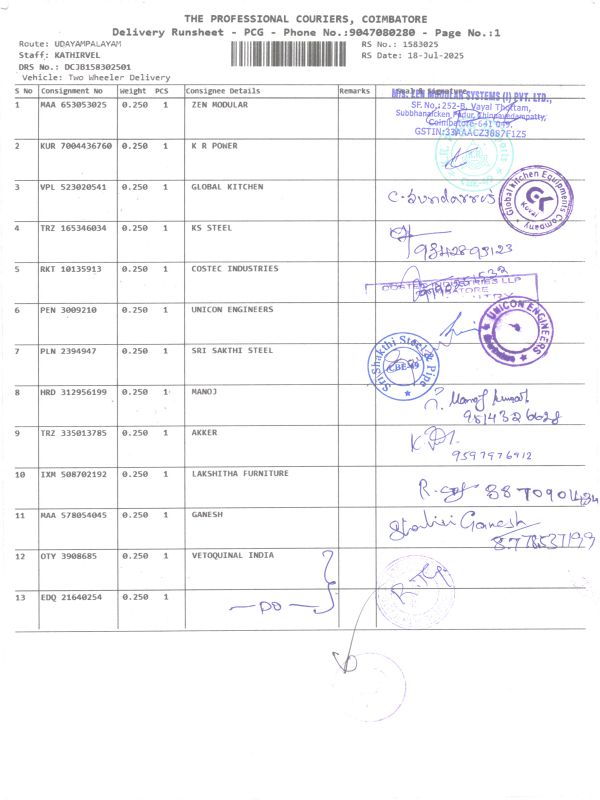 THE PROFESSIONAL COURIERS, COIMBATORE
Delivery Runsheet - PCG - Phone No.:9047080280 - Page No.:1
Route: UDAYAMPALAYAM
Staff: KATHIRVEL
DRS No.: DCJB158302501
Vehicle: Two Wheeler Delivery
RS No.: 1583025
RS Date: 18-Jul-2025
S No Consignment No Weight PCS Consignee Details Remarks Seal & Signature
1 MAA 653053025 0.250 1 ZEN MODULAR
M/s. ZEN MODULAR SYSTEMS (I) PVT. LTD.,
SF.No.:252-B, Vayal Thottam,
Subbhanaicken Pudur, Chinnavedampatty,
Coimbatore-641 049.
GSTIN:33AAACZ3887F1Z5
2 KUR 7004436760 0.250 1 K R POWER
CBE-49
3 VPL 523020541 0.250 1 GLOBAL KITCHEN
C. Sundarraj
Global Kitchen Equipments Company
GK
Kovai
4 TRZ 165346034 0.250 1 KS STEEL
9342893123
5 RKT 10135913 0.250 1 COSTEC INDUSTRIES
COSTEC INDUSTRIES LLP
6 PEN 3009210 0.250 1 UNICON ENGINEERS
UNICON ENGINEERS
7 PLN 2394947 0.250 1 SRI SAKTHI STEEL
Sri Shakthi Steel & Pipe
CBE-49
8 HRD 312956199 0.250 1 MANOJ
Manoj kumar
9514326628
9 TRZ 335013785 0.250 1 AKKER
9597976912
10 IXM 508702192 0.250 1 LAKSHITHA FURNITURE
11 MAA 578054045 0.250 1 GANESH
Ganesh
12 OTY 3908685 0.250 1 VETOQUINAL INDIA
13 EDQ 21640254 0.250 1 — DO —